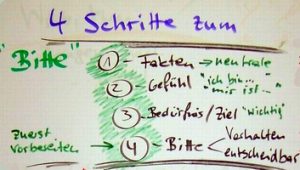 4 Schritte zum
"Bitte"
① - Fakten → neutrale
② - Gefühl "ich bin..." "mir ist..."
③ - Bedürfnis/Ziel "wichtig"
zuerst vorbereiten → ④ - Bitte < Verhalten
entscheidbar